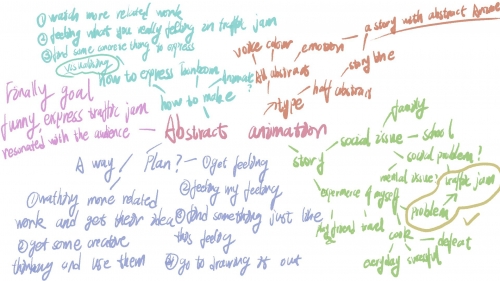 ① watch more related work
② feeling what you really feeling in traffic jam
③ find some amoroe thing to express
visualising
how to express
how to make
Abstract animation
voice colour
emotion
a story with abstract
All abstract
story line
half abstract
type
Finally goal
funny, express traffic jam
resonated with the audience
A way
① wathing more related
work and gets their idea
② get some creative
thinking and use them
Plan?
① get feeling
② feeling my feeling
③ find something just like
this feeling
④ go to drawing it out
story
social issue
family
school
social problem?
mental issue?
traffic jam
problem
experience of myself
my friend
travel
cook
defeat
everyday